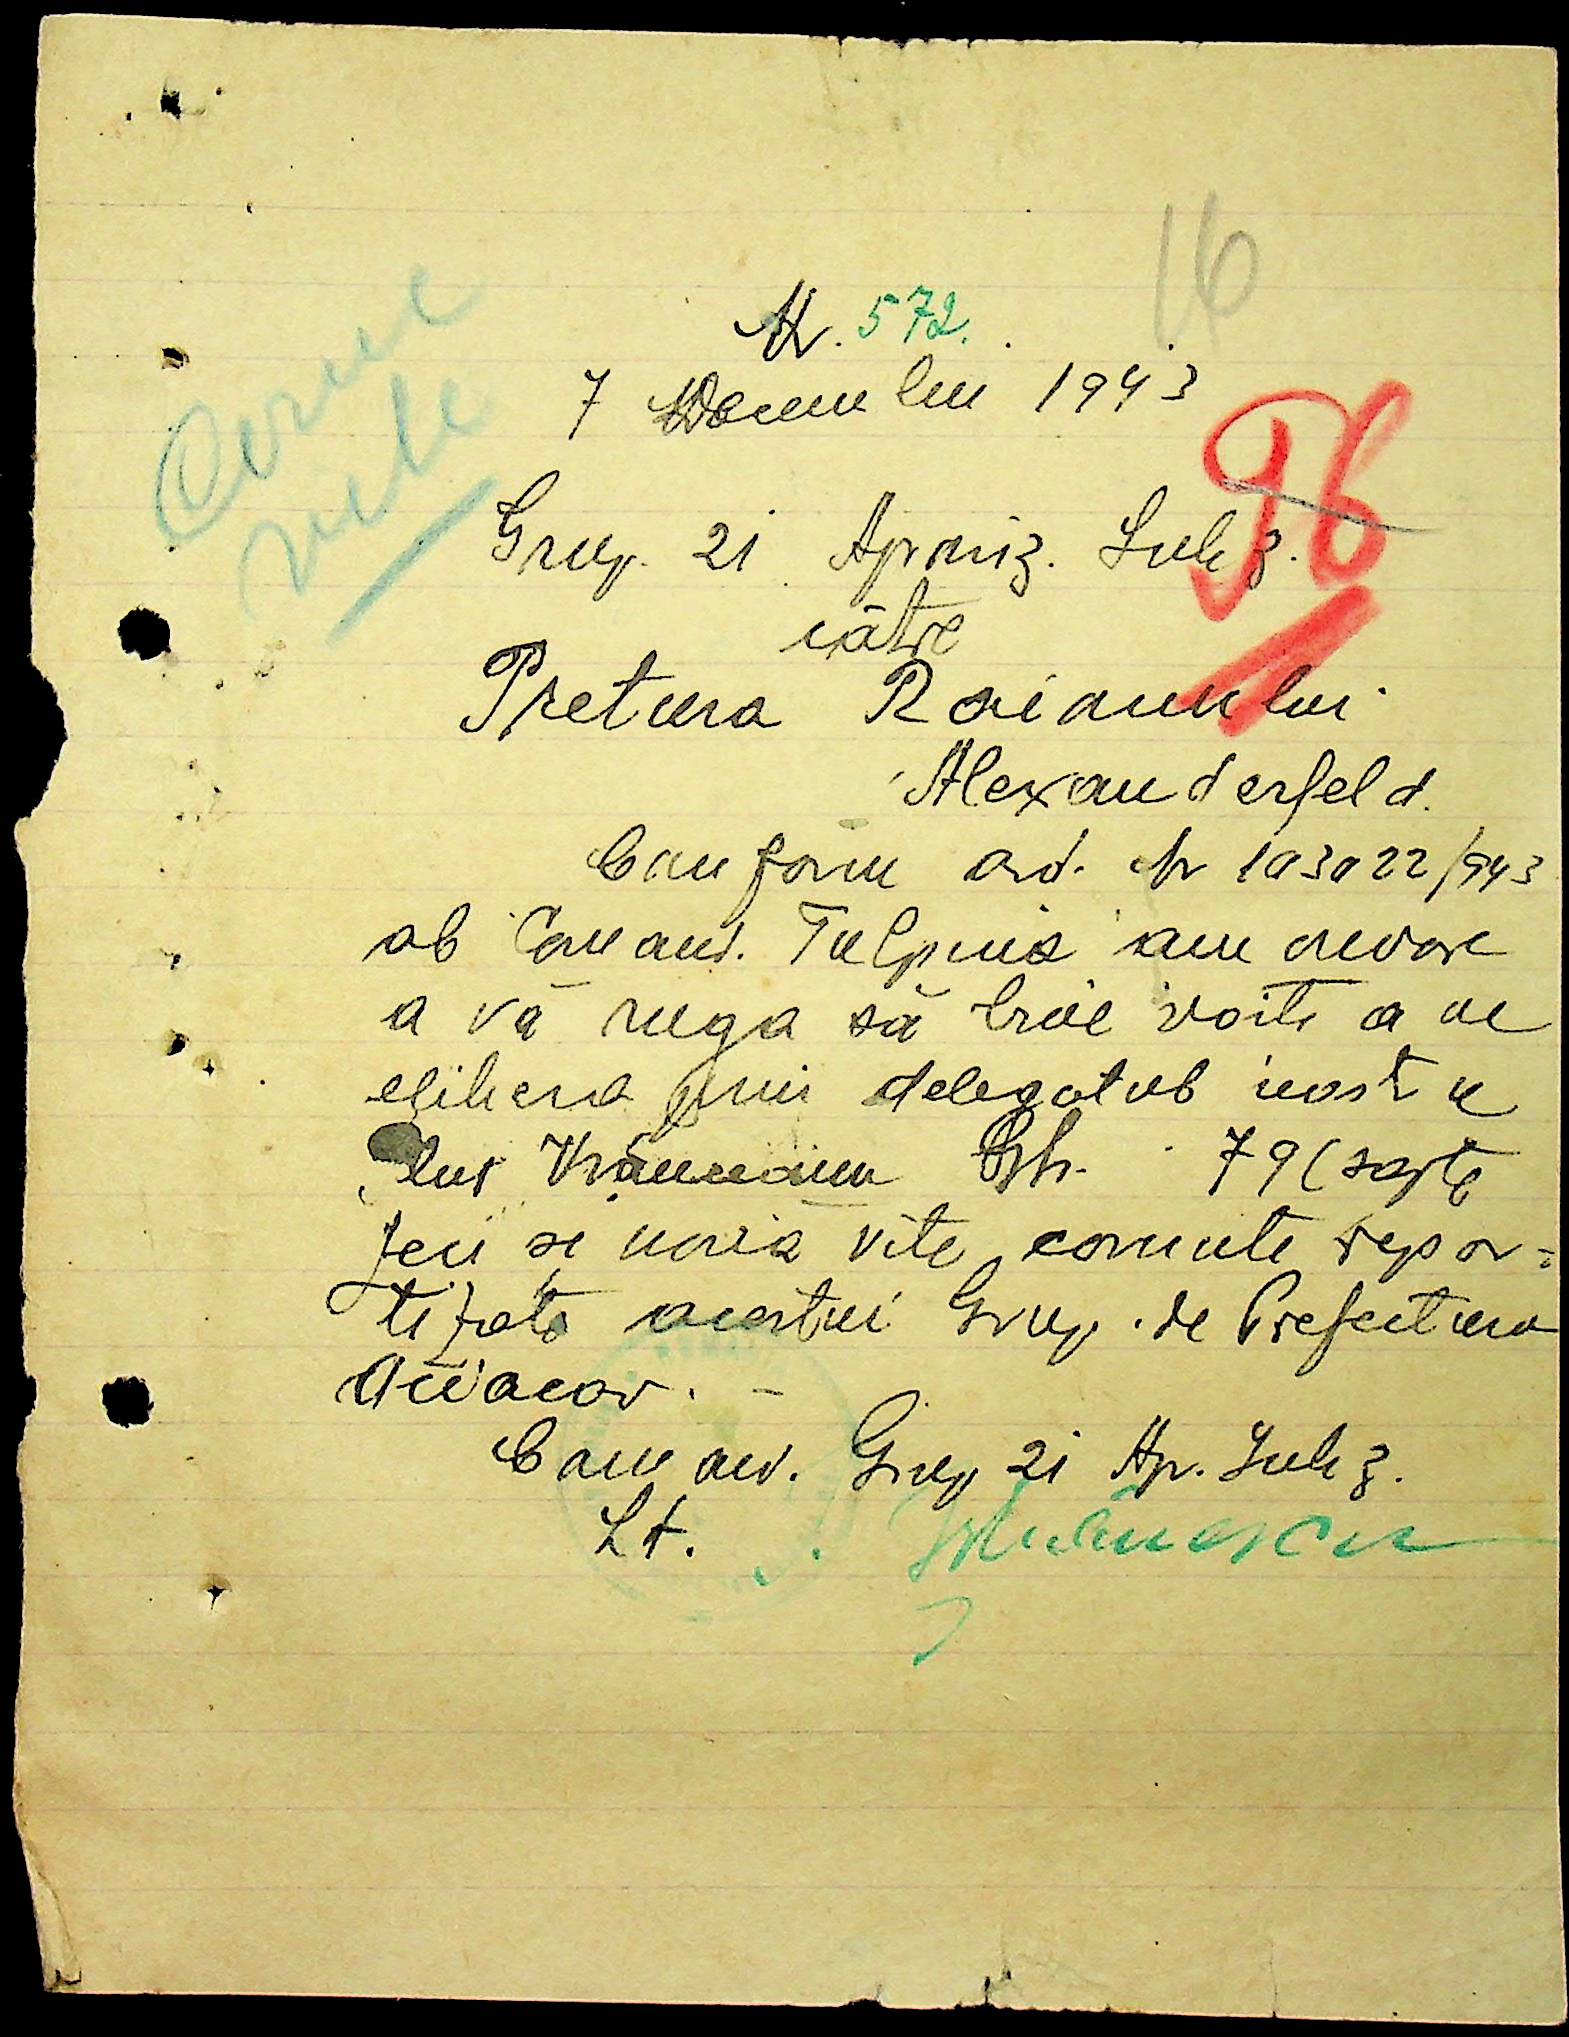 16
Nr. 572.
7 Decemvrie 1943
96
Grup. 21 Aproviz. Subz.
către
Pretura Raionului
Alexanderfeld.
Conform ord. Nr 103022/943
al Comand. am onoare
a vă ruga să bine voiți a ne
elibera prin delegatul nostru
Gh. 79 (sapte
zeci si nouă vite cornute repar-
tizate acestui Grup. de Prefectura
Oceacov. -
Comand. Grup 21 Ap. Subz.
Lt.